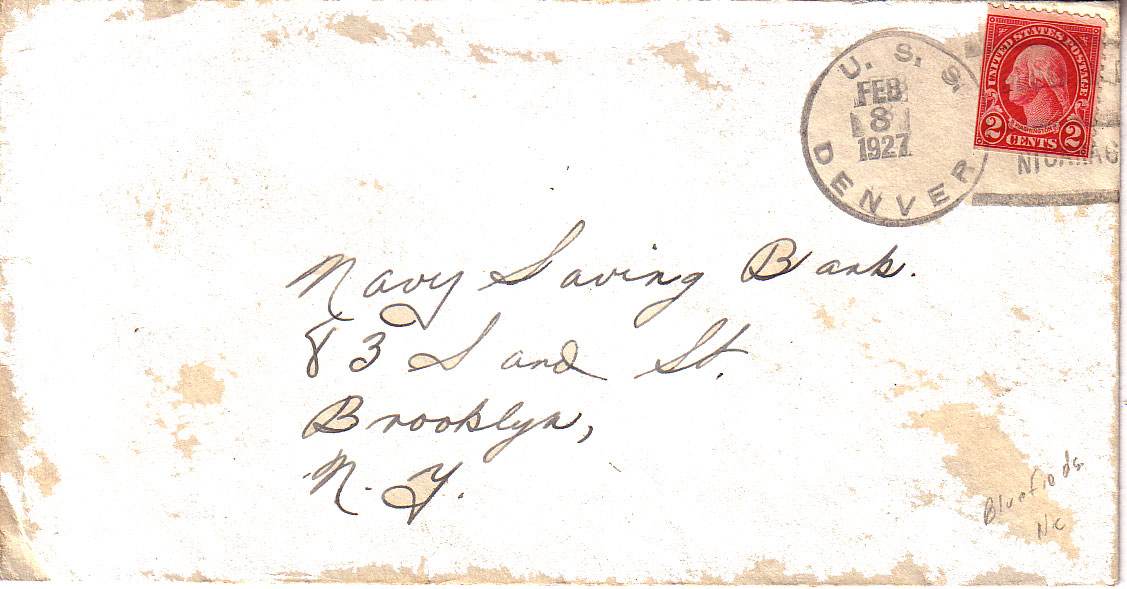 U. S. S.
FEB
8
1927
DENVER
UNITED STATES POSTAGE
WASHINGTON
2 CENTS 2
Navy Saving Bank.
83 Sand St.
Brooklyn,
N. Y.
Bluefields
Nic